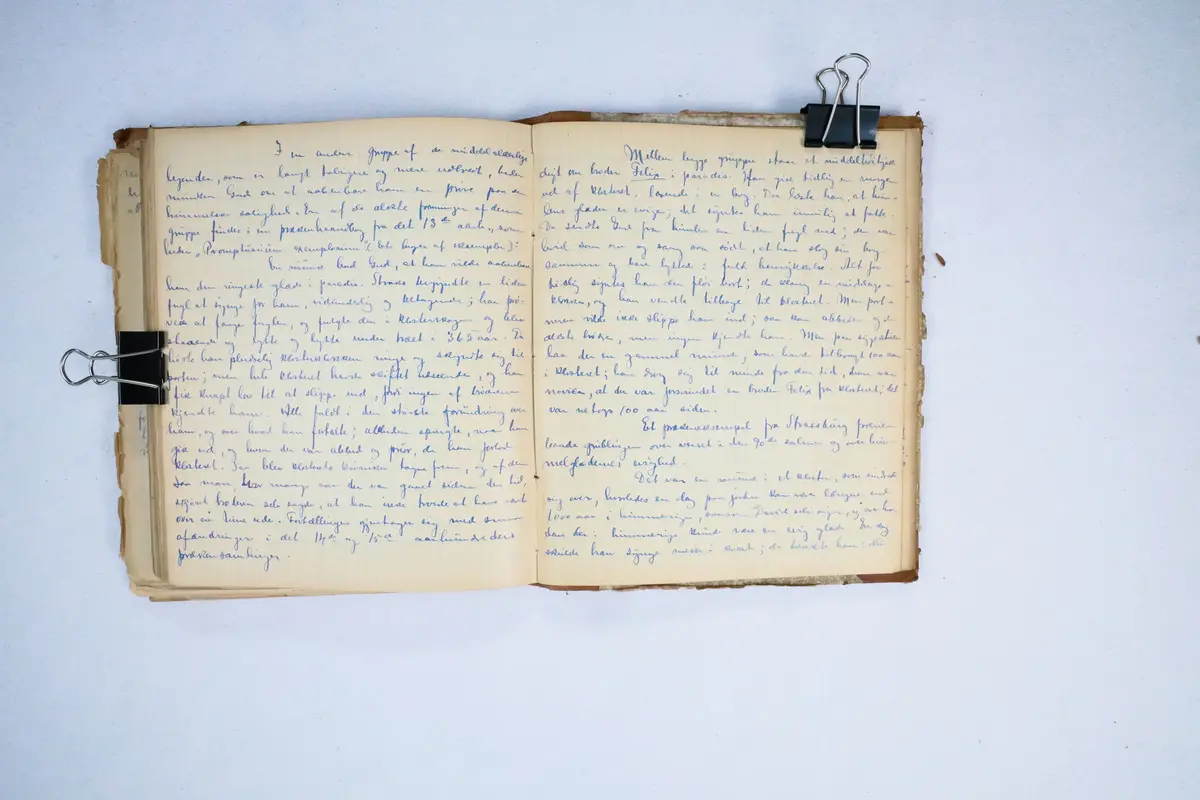 I en anden gruppe af de middelalderlige
legender, som er langt talrigere og mere udbredt, beder
munken Gud om at aabenbare ham en prøve paa den
himmelske salighed. En af de ældste formninger af denne
gruppe findes i en prækenhandbog fra det 13de aarh., som
heder "Promptuarium exemplorum" (bet. lager af exempler):
En munk bad Gud, at han vilde aabenbare
ham den ringeste glæde i paradis. Straks begyndte en liden
fugl at synge for ham, vidunderlig og betagende; han prø-
vede at fange fuglen, og fulgte den i klosterskogen og blev
staaende og lytte og lytte under træet i 365 aar. Da
hørte han pludselig klosterklokken ringe og skyndte sig til
porten; men hele klostret havde skiftet udseende, og han
fik knapt lov til at slippe ind, fordi ingen af brødrene
kjendte ham. Alle faldt i den største forundring over
ham, og over hvad han fortalte; abbeden spurgte, naar han
gik ud, og hvem der var abbed og prior, da han forlod
klostret. Saa blev klostrets krøniker tagne frem, og af dem
saa man hvor mange aar der var gaaet siden den tid,
skjønt broderen selv sagde, at han ikke troede at have været
over en time ude. Fortællingen gjentager sig med smaa
afændringer i det 14de og 15de aarhundredes
prækensamlinger.
Mellem begge grupper staar et middelhøitysk
digt om broder Felix i paradis. Han gik tidlig en morgen
ud af klostret, læsende i en bog. Der læste han, at him-
lens glæder er evige; det syntes ham umulig at fatte.
Da sendte Gud fra himlen en liden fugl ned; den var
hvid som sne og sang saa sødt, at han slog sin bog
sammen og bare lyttede i fuld henrykkelse. Alt for
tidlig syntes han den fløi bort; da klang en middags-
klokken, og han vendte tilbage til klostret. Men port-
neren vilde ikke slippe ham ind; saa kom abbeden og de
ældste brødre, men ingen kjendte ham. Men paa sygestuen
laa der en gammel munk, som havde tilbragt 100 aar
i klostret; han drog sig til minde fra den tid, han var
novice, at der var forsvundet en broder Felix fra klostret; det
var netop 100 aar siden.
Et prækenexempel fra Strassburg forene
leende grublingen over verset i den 90de salme og over him-
melglædenes evighed.
Det var en munk i et kloster, som undred
sig over, hvorledes en dag paa jorden kan være længere end
1000 aar i himmerige, som David selv siger, og hvor-
dan der i himmerige kunde være en evig glæde. En dag
skulde han synge messe i koret; da tænkte han i sin